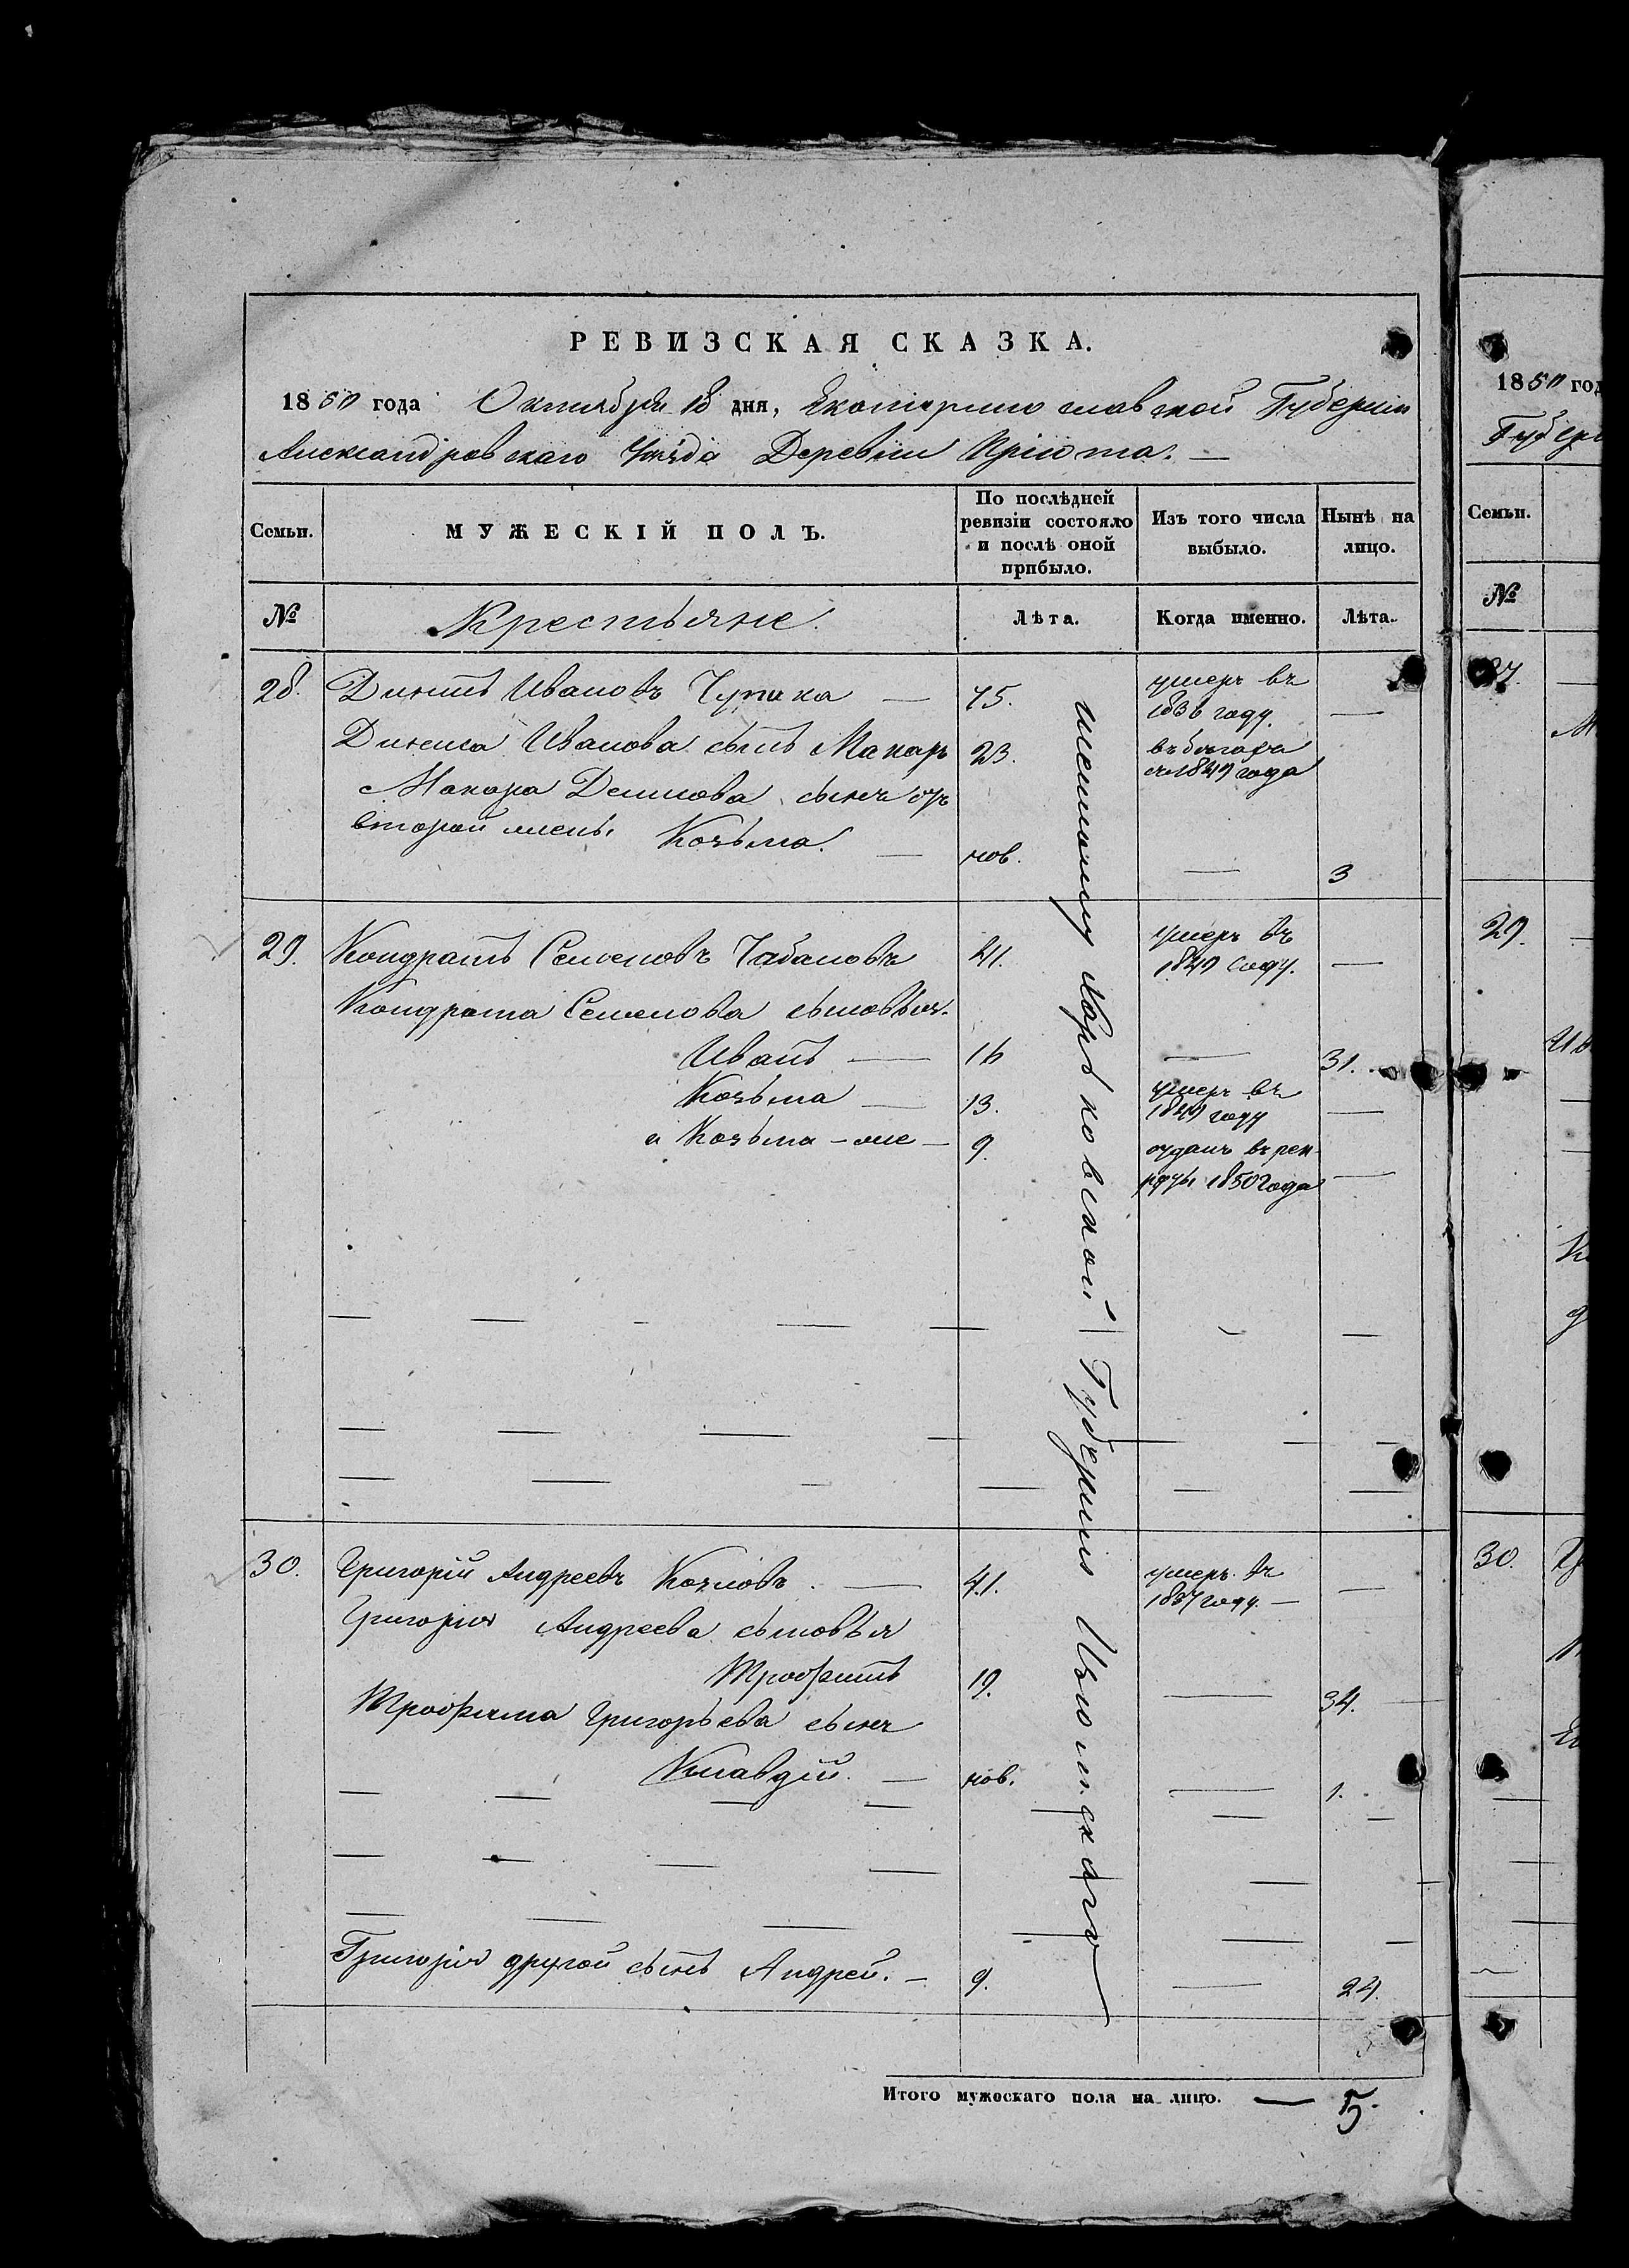 РЕВИЗСКАЯ СКАЗКА.
1850 года Октября 18 дня, Екатеринославской Губерніи
Александровскаго Уѣзда Деревни Пріюта. —
Семьи.
МУЖЕСКІЙ ПОЛЪ.
По послѣдней ревизіи состояло и послѣ оной прибыло.
Изъ того числа выбыло.
Нынѣ на лицо.
№
Крестьяне.
Лѣта.
Когда именно.
Лѣта.
28. Ивановъ — 75. умеръ въ
1836 году. —
Иванова сынъ Макаръ 23. въ
1849 года
Макара Денисова сынъ отъ
второй жены Козьма. — нов. — 3
29. Кондратъ Семеновъ Чабановъ 41. умеръ въ
1849 году. —
Кондрата Семенова сыновья.
Иванъ — 16 — 31.
Козьма — 13. умеръ въ
1849 году —
и Козьма-же — 9. отданъ въ рек-
руты 1850 года —
30. Григорій Андреевъ Козловъ. — 41. умеръ въ
1837 году. — —
Григорія Андреева сыновья
Трофимъ 19. — 34.
Трофима Григорьева сынъ
Клавдій. — нов. — 1.
Григорія другой сынъ Андрей. — 9. — 24.
Харьковской Губерніи Изюмскаго
Итого мужескаго пола на лицо. — 5.
1850 год
Губерн
Семьи.
№
29.
30.